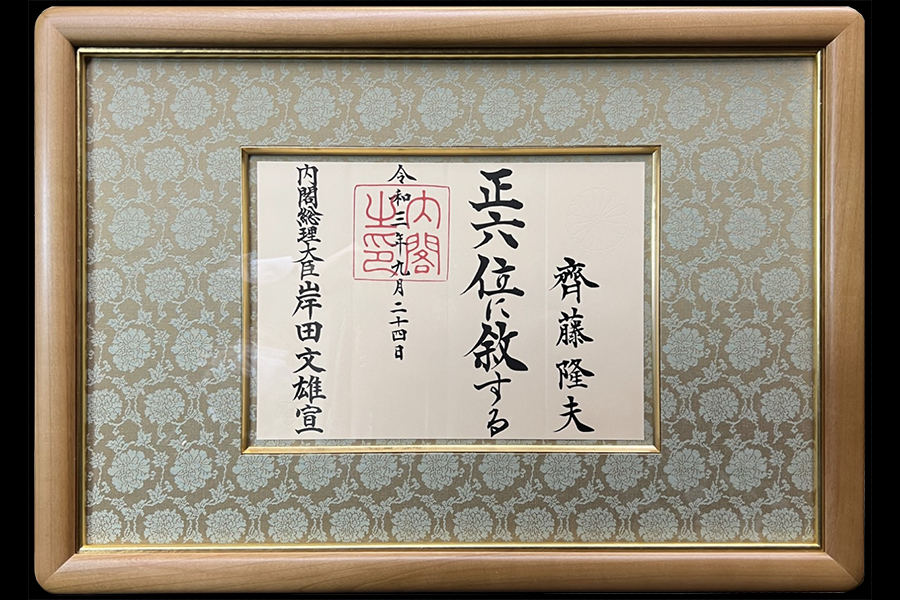 齊藤隆夫
正六位に叙する
令和三年九月二十四日
内閣之印
内閣総理大臣岸田文雄宣